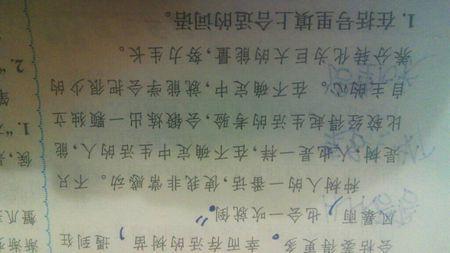 会枯萎得更多。幸而存活的树苗，遇到狂
风暴雨，也会一吹就倒。”
种树人的一番话，使我非常感动。不只
是树，人也是一样，在不确定中生活的人，能
比较经得起生活的考验，会锻炼出一颗独立
自主的心。在不确定中，就能学会把很少的
养分转化为巨大的能量，努力生长。
1. 在括号里填上合适的词语。
渐渐
蟹爪
候，
1. “
2. “